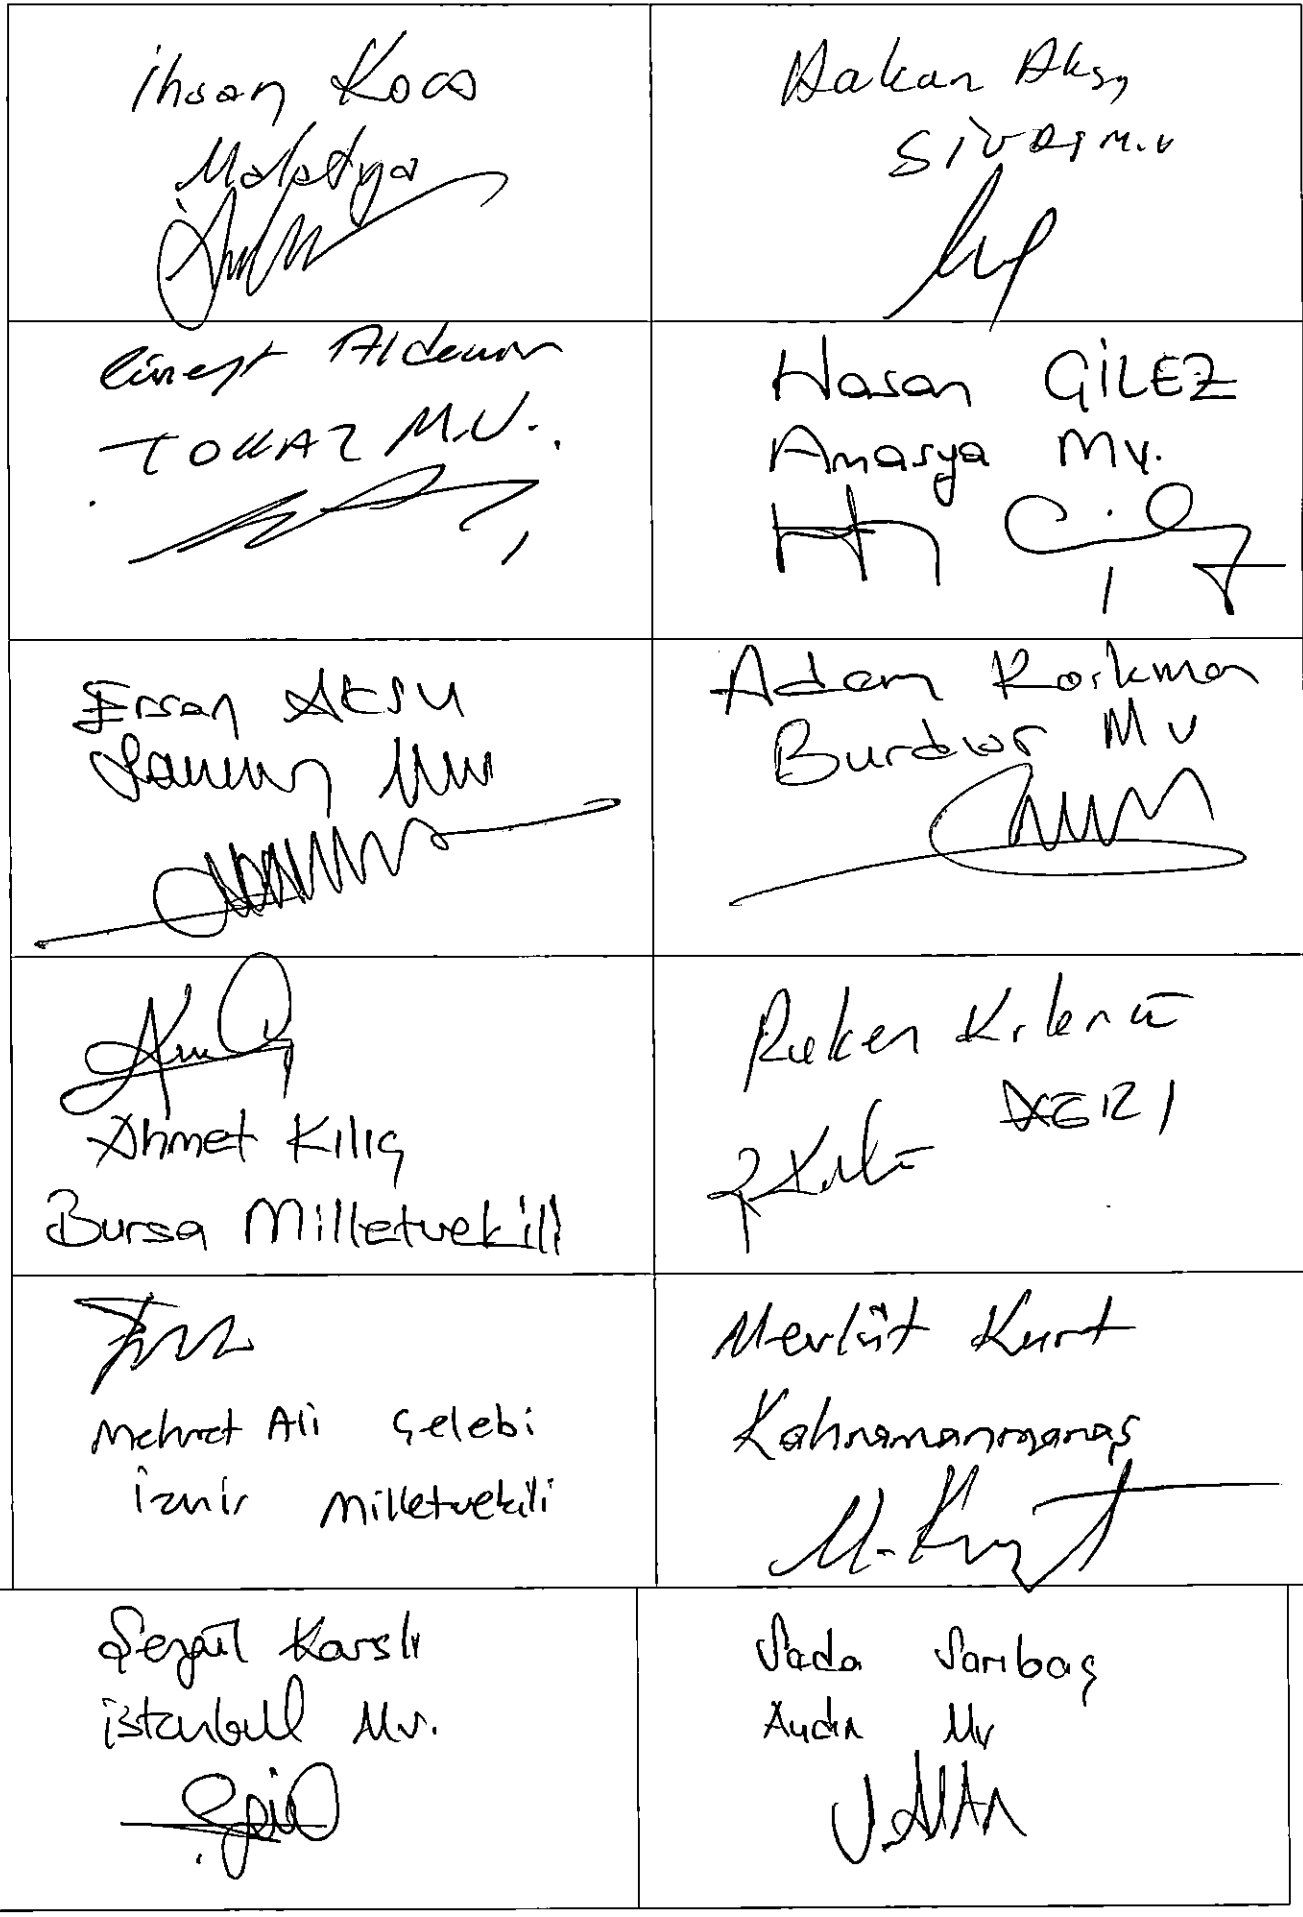 İhsan Koca
Malatya
Hakan Aksu
SİVAS M.V
Cüneyt Aldemir
TOKAT M.V.
Hasan GİLEZ
Amasya Mv.
Ersan AKSU
Samsun Mv
Adem Korkmaz
Burdur Mv
Ahmet Kılıç
Bursa Milletvekili
Ruken Kilerci
AĞRI
Mehmet Ali Çelebi
İzmir Milletvekili
Mevlüt Kurt
Kahramanmaraş
M. Kurt
Şengül Karslı
İstanbul Mv.
Seda Sarıbaş
Aydın Mv